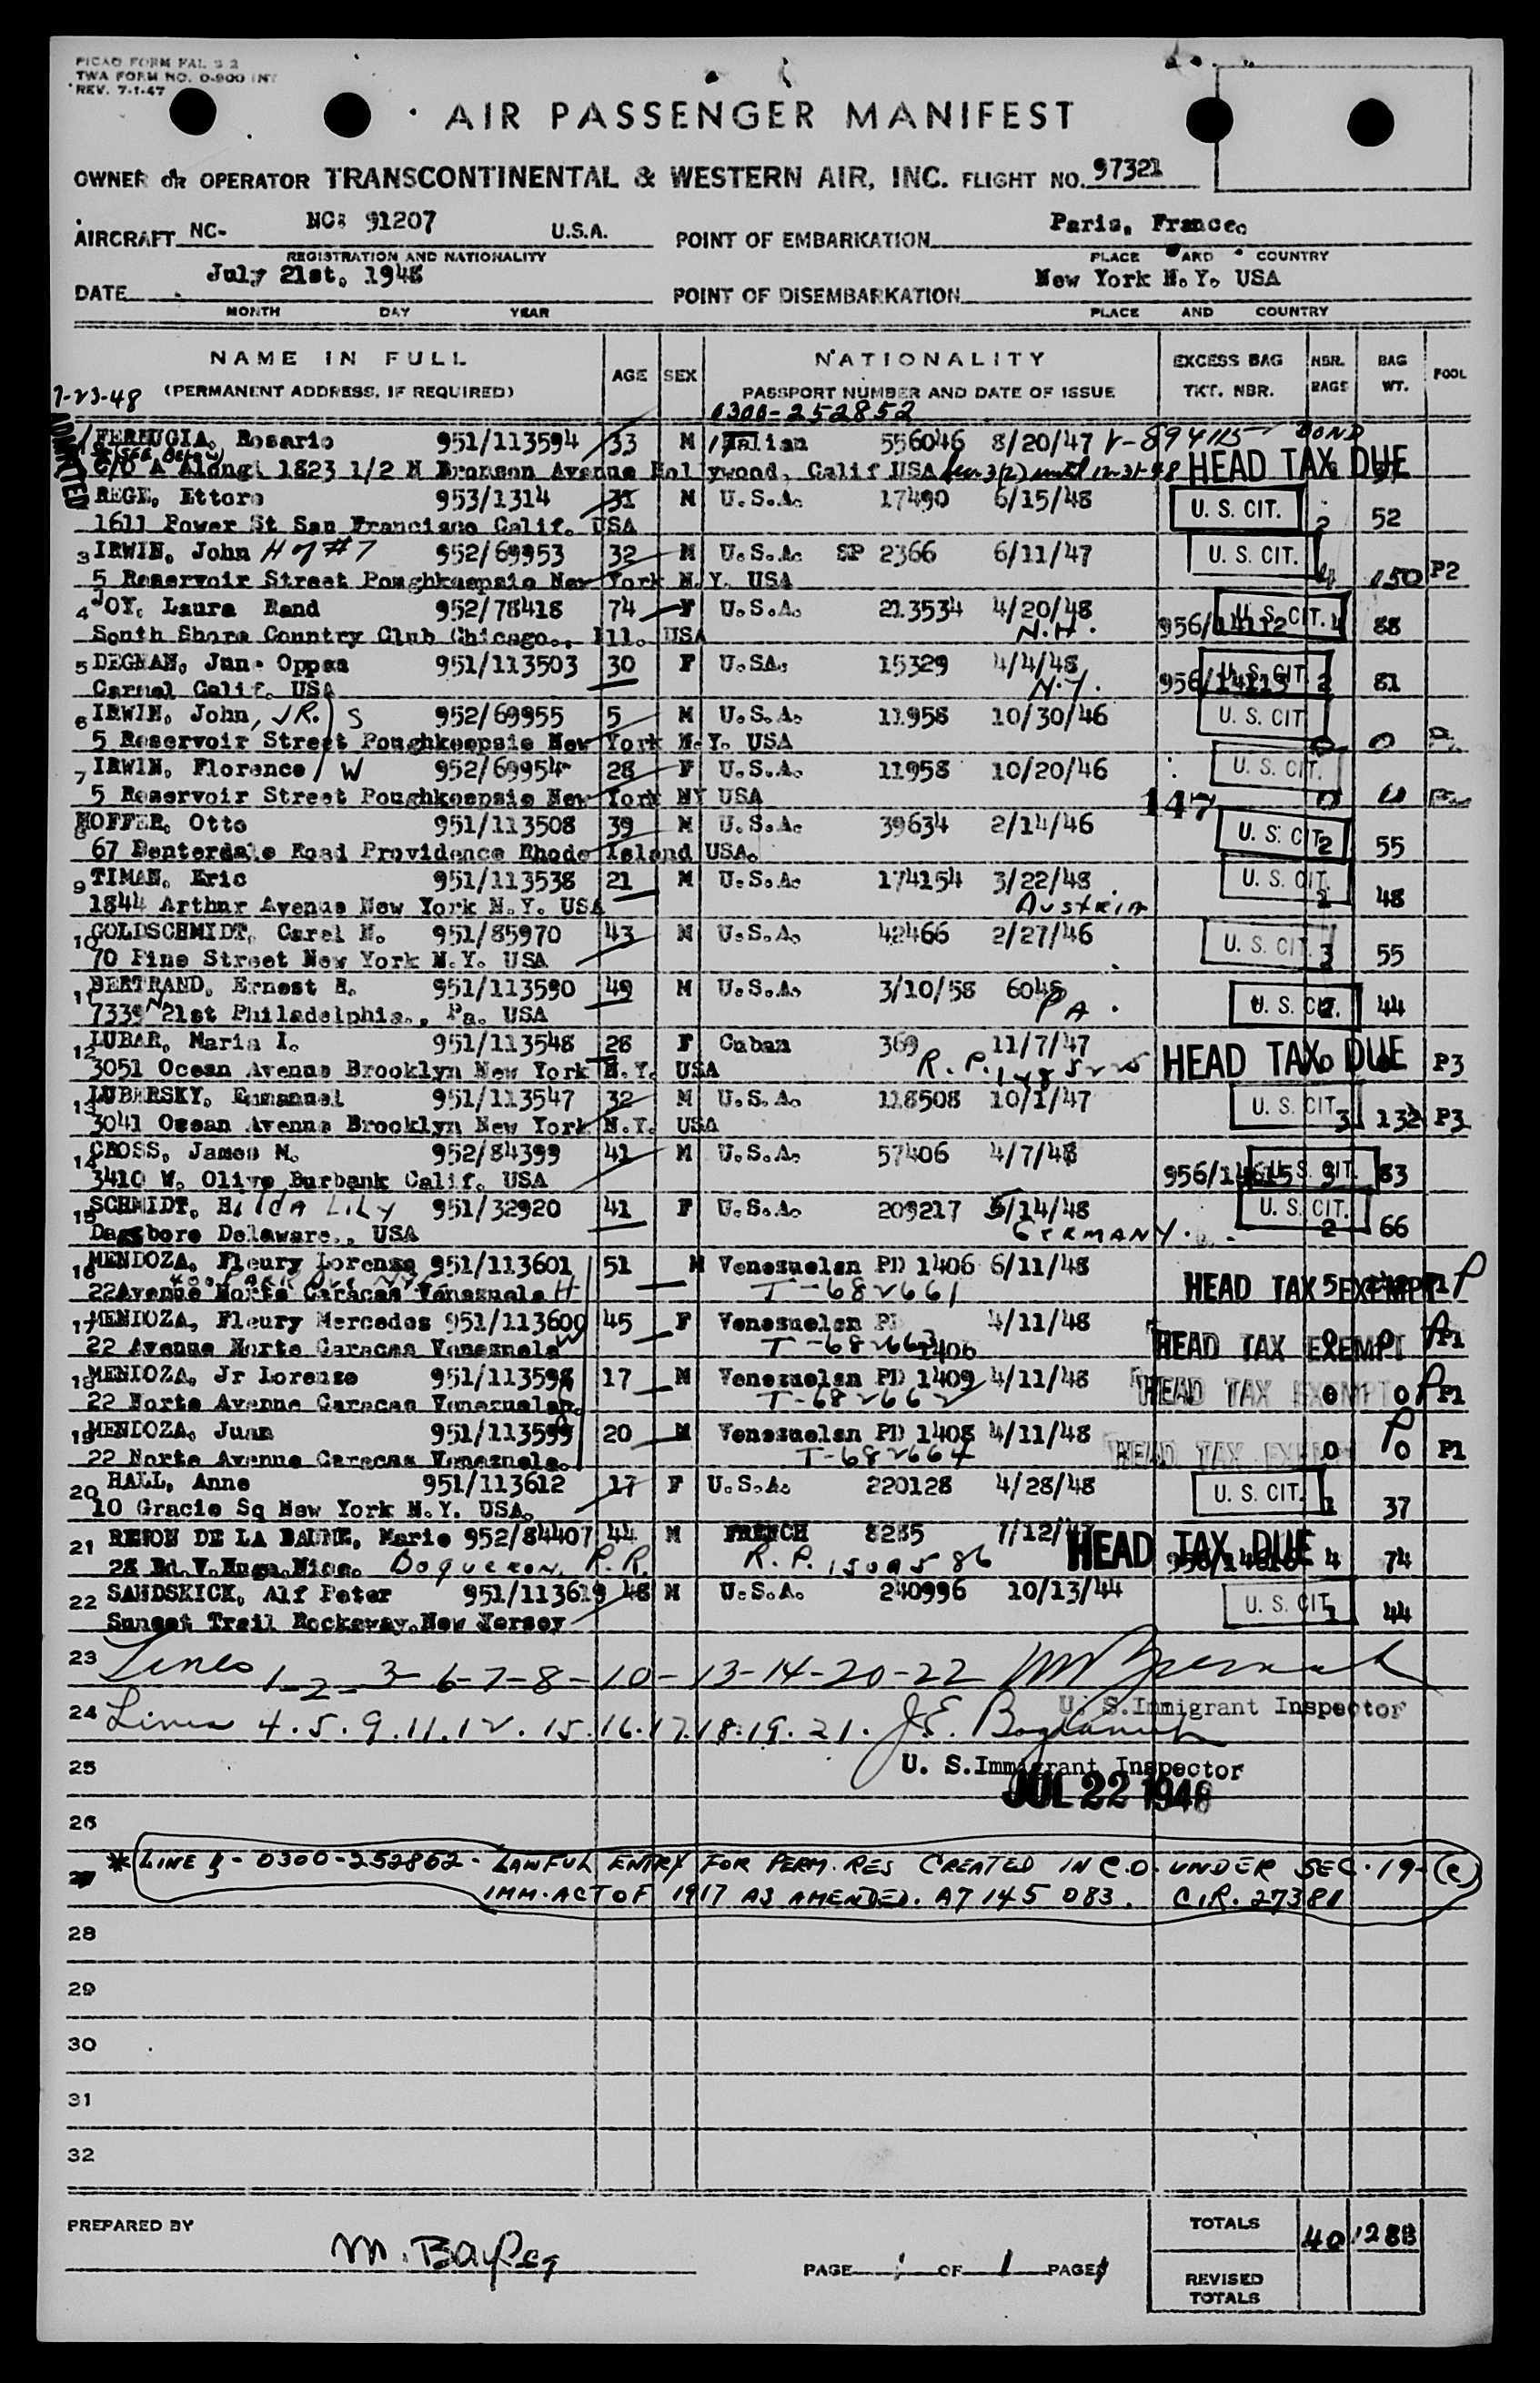 PICAO FORM FAL 3 2
TWA FORM NO. 0-900 INT
REV. 7-1-47
AIR PASSENGER MANIFEST
OWNER OR OPERATOR TRANSCONTINENTAL & WESTERN AIR, INC. FLIGHT NO. 97321
AIRCRAFT NC- NC: 91207 U.S.A. POINT OF EMBARKATION Paris, France.
REGISTRATION AND NATIONALITY PLACE AND COUNTRY
DATE July 21st, 1948 POINT OF DISEMBARKATION New York N.Y. USA
MONTH DAY YEAR PLACE AND COUNTRY
NAME IN FULL AGE SEX NATIONALITY EXCESS BAG NBR. BAG POOL
7-23-48 (PERMANENT ADDRESS, IF REQUIRED) PASSPORT NUMBER AND DATE OF ISSUE TKT. NBR. BAGS WT.
ADMITTED
0300-252852
1 FERRUGIA, Rosario 951/113594 33 M Italian 556046 8/20/47 V-894115 BOND
C/O A Alongi 1823 1/2 N Bronson Avenue Hollywood, Calif USA Sec 3(2) until 12-31-48 HEAD TAX DUE
REGE, Ettore 953/1314 31 M U.S.A. 17490 6/15/48 U. S. CIT. 2 52
1611 Power St San Francisco Calif. USA
3 IRWIN, John H of #7 952/69953 32 M U.S.A. SP 2366 6/11/47 U. S. CIT. 4 150 P2
5 Reservoir Street Poughkeepsie New York N.Y. USA
4 JOY, Laura Rand 952/78418 74 F U.S.A. 213534 4/20/48 N.H. 956/14112 U. S. CIT. 4 88
South Shore Country Club Chicago., Ill. USA
5 DEGNAN, June Oppen 951/113503 30 F U.SA. 15329 4/4/48 N.Y. 956/14113 U. S. CIT. 2 81
Carmel Calif. USA
6 IRWIN, John, JR. S 952/69955 5 M U.S.A. 11958 10/30/46 U. S. CIT 0 0
5 Reservoir Street Poughkeepsie New York N.Y. USA
7 IRWIN, Florence W 952/69954 28 F U.S.A. 11958 10/20/46 U. S. CIT. 0 0
5 Reservoir Street Poughkeepsie New York NY USA 147
8 HOFFER, Otto 951/113508 39 M U.S.A. 39634 2/14/46 U. S. CIT 2 55
67 Benterdale Road Providence Rhode Island USA.
9 TIMAN, Eric 951/113538 21 M U.S.A. 174154 3/22/48 Austria U. S. CIT. 1 48
1844 Arthur Avenue New York N.Y. USA
10 GOLDSCHMIDT, Carel H. 951/85970 43 M U.S.A. 42466 2/27/46 U. S. CIT. 3 55
70 Pine Street New York N.Y. USA
11 BERTRAND, Ernest E. 951/113590 49 M U.S.A. 3/10/58 6048 PA. U. S. CIT. 2 44
7339 N 21st Philadelphia., Pa. USA
12 LUBAR, Maria I. 951/113548 28 F Cuban 369 11/7/47 HEAD TAX DUE 0 0 P3
3051 Ocean Avenue Brooklyn New York N.Y. USA R.P.
13 LUBERSKY, Emmanuel 951/113547 32 M U.S.A. 118508 10/1/47 U. S. CIT. 3 132 P3
3041 Ocean Avenue Brooklyn New York N.Y. USA
14 CROSS, James M. 952/84399 41 M U.S.A. 57406 4/7/48 956/14615 U. S. CIT. 3 83
3410 W. Olive Burbank Calif. USA
15 SCHMIDT, Hilda LiLy 951/32920 41 F U.S.A. 209217 5/14/48 GERMANY. U. S. CIT. 2 66
Dagsboro Delaware., USA
16 MENDOZA, Fleury Lorenzo 951/113601 51 M Venezuelan PD 1406 6/11/48 HEAD TAX EXEMPT 5 P1 P
22Avenue Norte Caracas Venezuela H T-682661
17 MENDOZA, Fleury Mercedes 951/113600 45 F Venezuelan PD 1406 4/11/48 HEAD TAX EXEMPT 0 0 P1
22 Avenue Norte Caracas Venezuela W T-682663
18 MENDOZA, Jr Lorenzo 951/113598 17 M Venezuelan PD 1409 4/11/48 HEAD TAX EXEMPT 0 0 P1
22 Norte Avenue Caracas Venezuela. T-682662
19 MENDOZA, Juan 951/113599 20 M Venezuelan PD 1408 4/11/48 HEAD TAX EXEMPT 0 0 P1
22 Norte Avenue Caracas Venezuela. T-682664
20 HALL, Anne 951/113612 17 F U.S.A. 220128 4/28/48 U. S. CIT. 1 37
10 Gracie Sq New York N.Y. USA.
21 RENON DE LA BAUME, Marie 952/84407 44 M FRENCH 8285 7/12/47 HEAD TAX DUE 4 74
28 Bd.V.Hugo.Nice. Boqueron, P.R. R.P. 1509586
22 SANDSKICK, Alf Peter 951/113619 48 M U.S.A. 240996 10/13/44 U. S. CIT. 1 44
Sunset Trail Rockaway.New Jersey
23 Lines 1-2-3-6-7-8-10-13-14-20-22
U. S.Immigrant Inspector
24 Lines 4.5.9.11.12.15.16.17.18.19.21. J.E.
25 U. S.Immigrant Inspector
JUL 22 1948
26
27 * LINE 1 - 0300-252862 - LAWFUL ENTRY FOR PERM. RES CREATED IN C.O. UNDER SEC. 19-(c)
IMM. ACT OF 1917 AS AMENDED. A7 145 083. CIR. 27381
28
29
30
31
32
PREPARED BY TOTALS 40 1288
M. Bayley
PAGE 1 OF 1 PAGES
REVISED
TOTALS